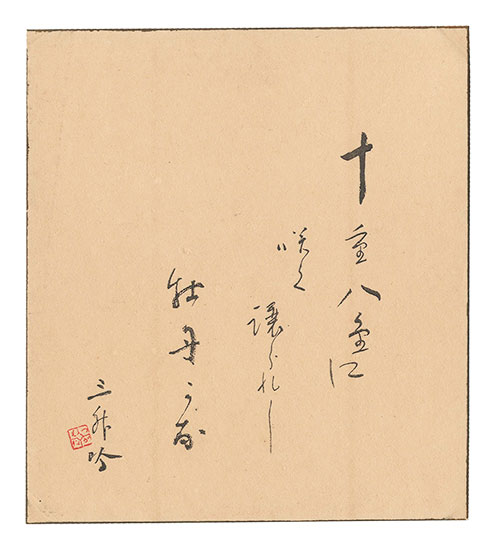 十重八重に
咲く
譲られし
牡丹かな
三升吟